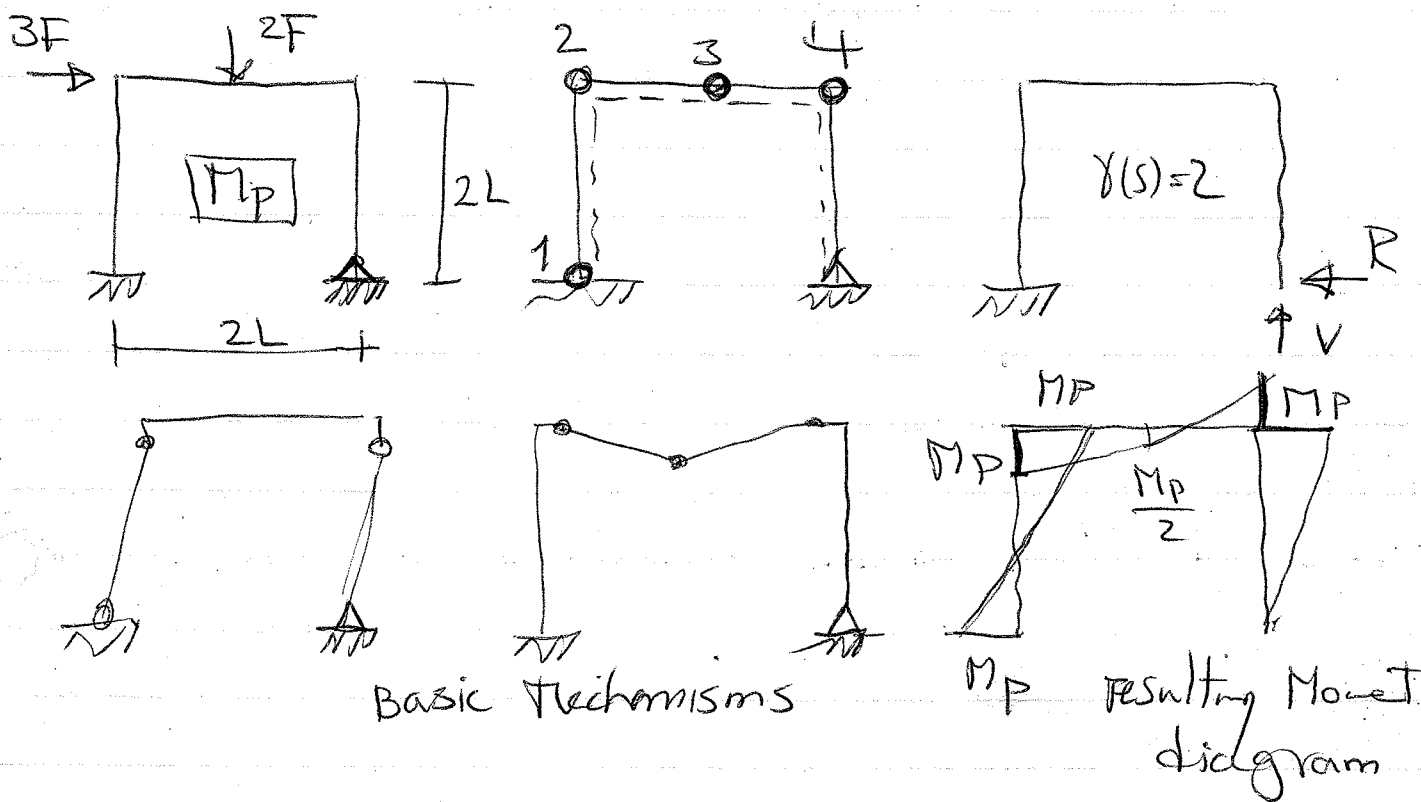 3F
2F
Mp
2L
2L
2
3
4
1
γ(s)=2
R
V
Mp
Mp
Mp
Mp
2
Mp
Basic Mechanisms
resulting Moment
diagram